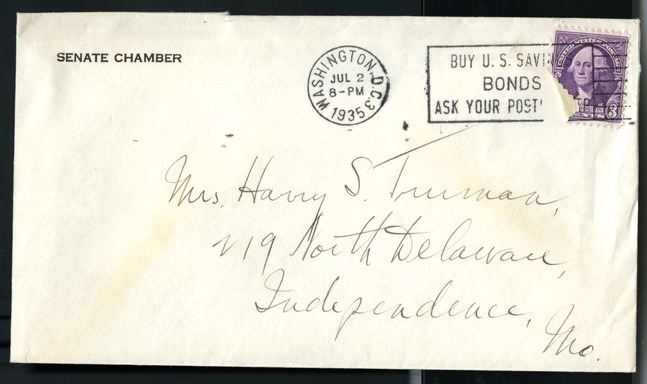 SENATE CHAMBER
WASHINGTON, D.C. 3
JUL 2
8-PM
1935
BUY U.S. SAVIN
BONDS
ASK YOUR POST
Mrs. Harry S. Truman,
219 North Delaware,
Independence,
Mo.